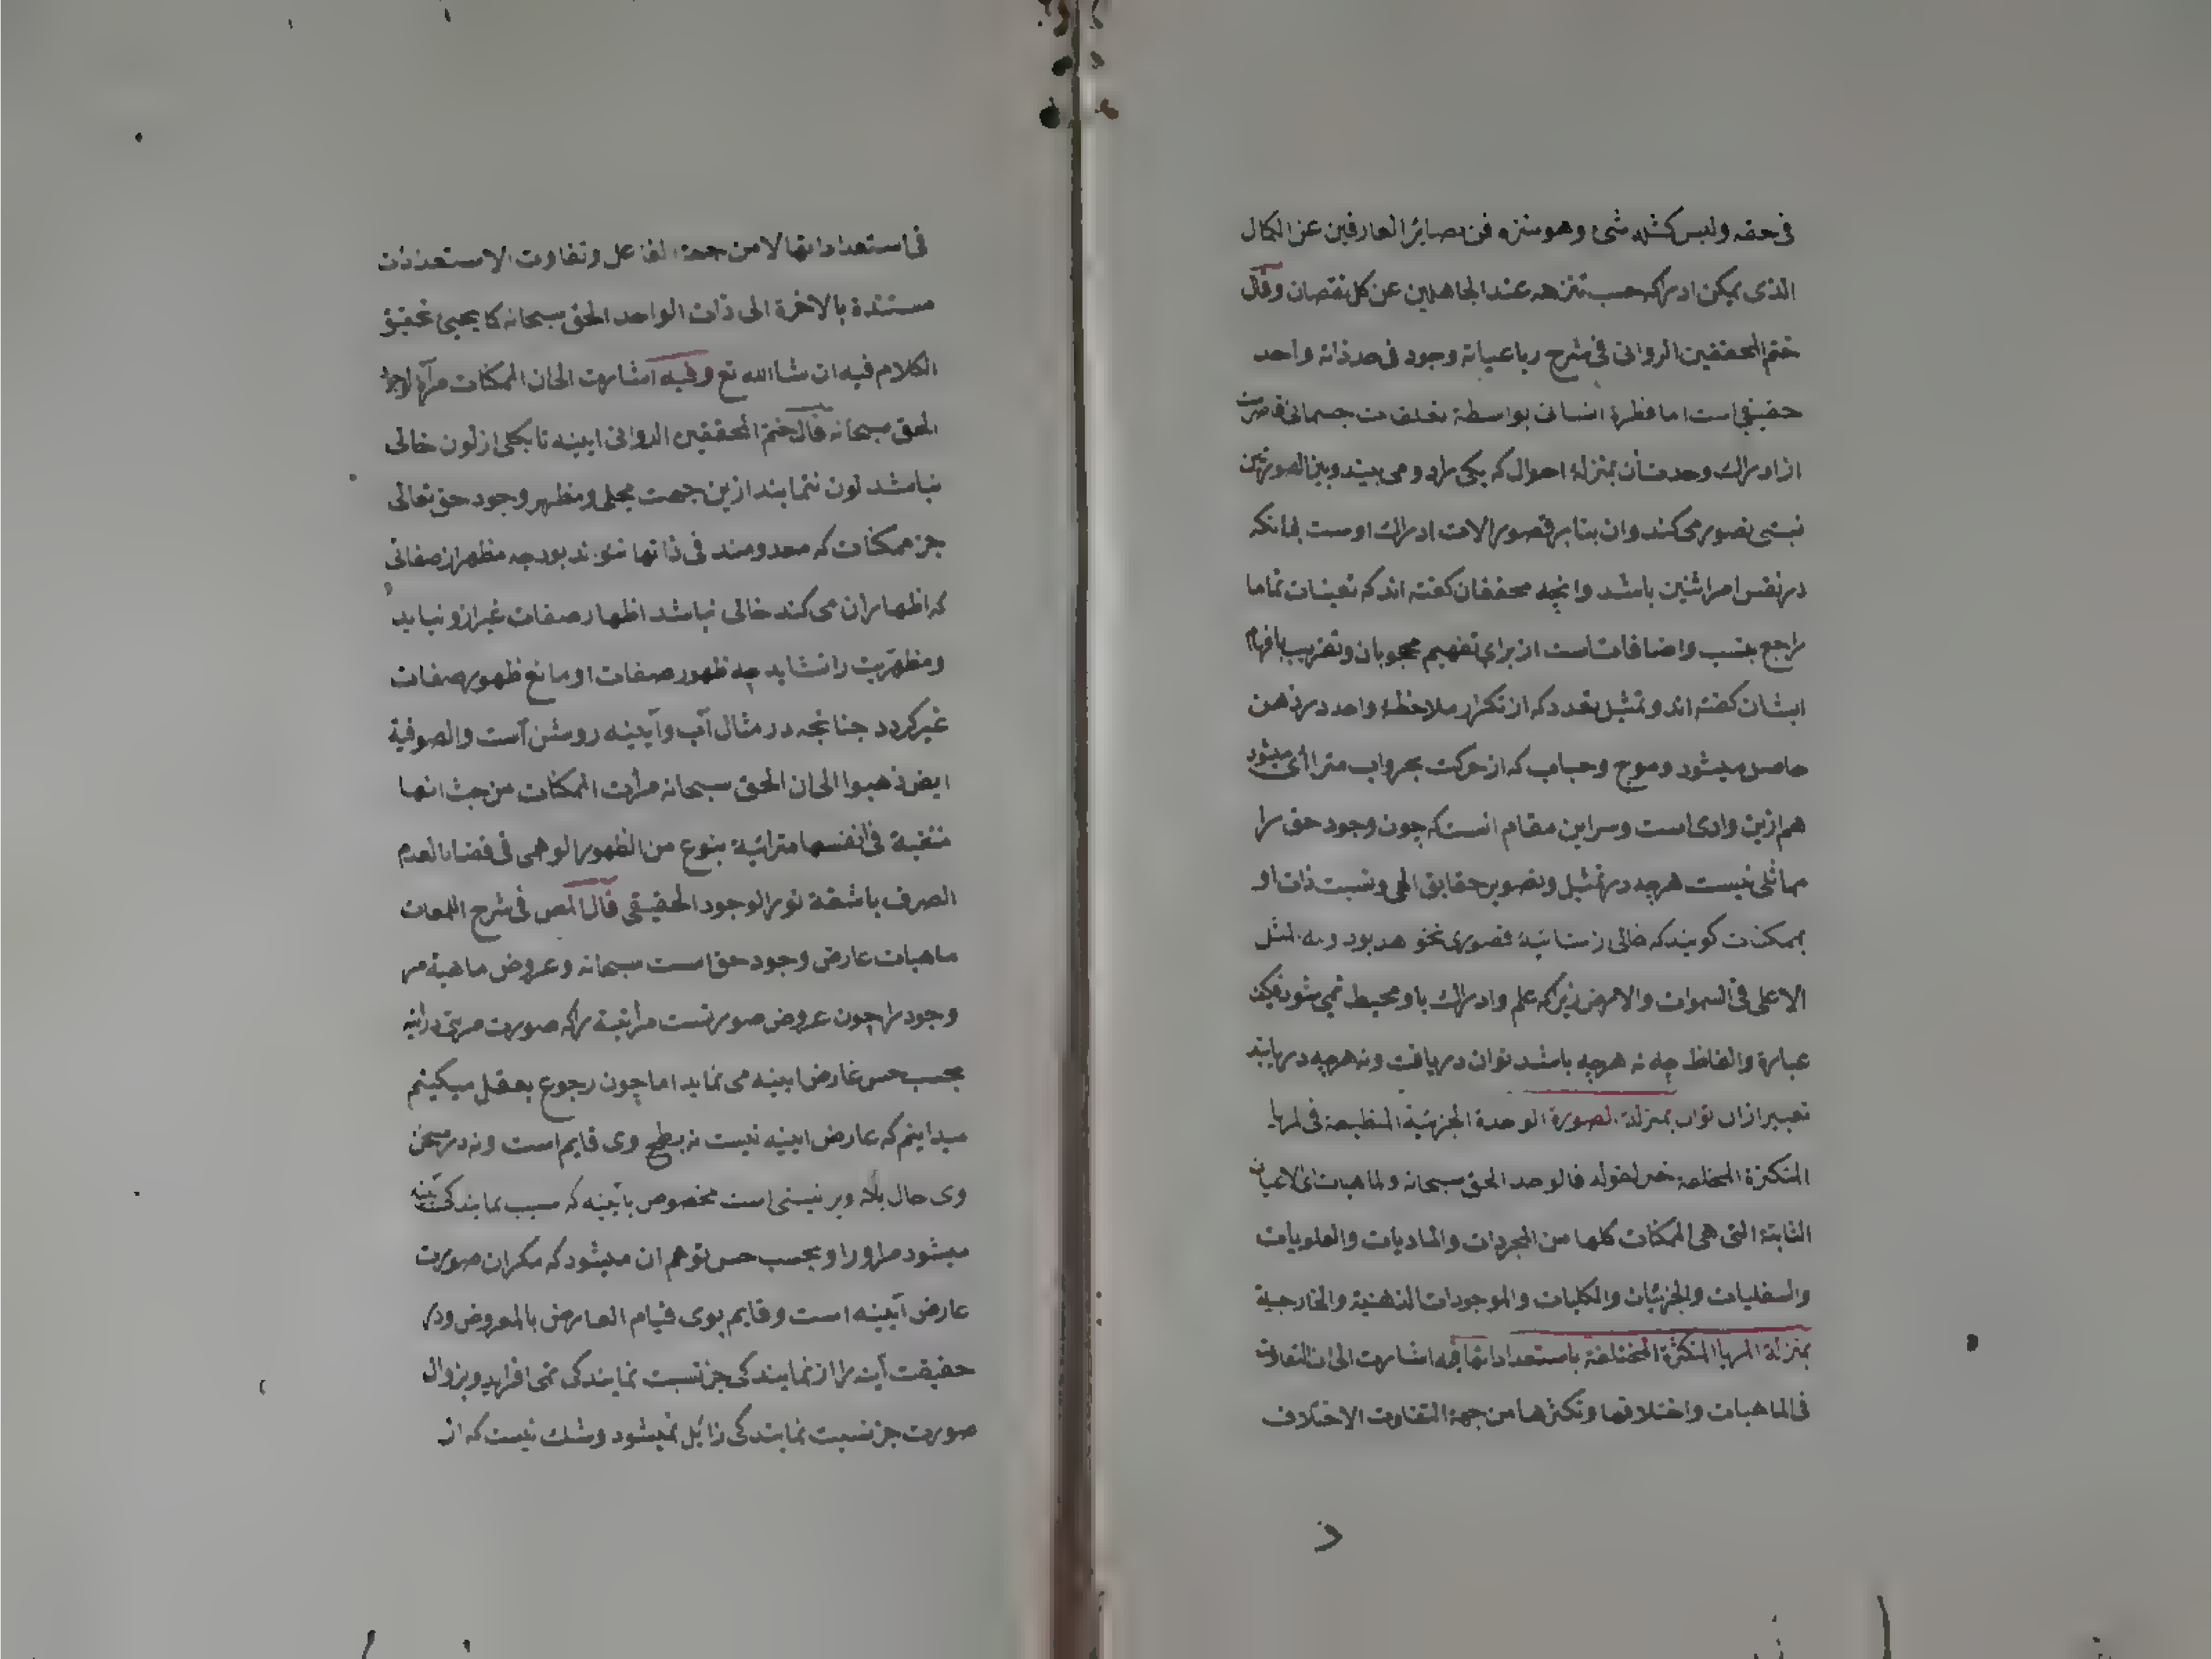 فی حقه ولیس کمثله شیٔ وهو منزه فی بصائر العارفین عن الکمال
الذی یمکن ادراکه حسب تنزهه عند الجاهلین عن کل نقصان وقال
ختم المحققین الدوانی فی شرح رباعیاته وجود فی حد ذاته واحد
حقیقی است اما فطرة انسانی بواسطهٔ تعلقات جسمانی قاصرست
از ادراک وحدت آن بمنزلهٔ احوال که یکی را دو می بیند وبین الصورتین
نسبتی تصور می کند وان بنا بر قصور الات ادراک اوست نه انکه
در نفس امر اثنین باشد وانچه محققان کفته اند که تعینات تماما
راجع بنسب واضافات است از برای تفهیم محجوبان وتقریب بافهام
ایشان کفته اند وتمثیل بعدد که از تکرار ملاحظهٔ واحد در ذهن
حاصل میشود وموج وحباب که از حرکت بحر واب مترائی میشود
هم ازین وادی است وسر این مقام انست که چون وجود حق را
مماثلی نیست هرچه در تمثیل وتصویر حقایق الهی ونسبت ذات او
بممکنات کویند که خالی از شائبهٔ قصوری نخواهد بود وله المثل
الاعلی فی السموات والارض زیرا که علم وادراک باو محیط نمی شود فکیف
عبارة والفاظ چه نه هرچه باشد توان دریافت ونه هرچه دریابند
تعبیر ازان توان بمنزلة الصورة الوحدة الجزئیة المنطبعة فی المرایا
المتکثرة المختلفة خبر لقوله فالوحد الحق سبحانه والماهیات ای الاعیان
الثابتة التی هی الممکنات کلها من المجردات والمادیات والعلویات
والسفلیات والجزئیات والکلیات والموجودات الذهنیة والخارجیة
بمنزلة المرایا المتکثرة المختلفة باستعداداتها فیه اشارت الی ان التفاوت
فی الماهیات واختلافها وتکثرها من جهة التفاوت الاختلاف
فی استعداداتها لا من جهة الفاعل وتفاوت الاستعدادات
مستندة بالاخرة الی ذات الواحد الحق سبحانه کما یجیئ تحقیق
الکلام فیه ان شا الله تع وفیه اشارت الی ان الممکنات مرآة لوجود
الحق سبحانه قال ختم المحققین الدوانی ایینه تا بکلی از لون خالی
نباشد لون ننماید ازین جهت مجلی ومظهر وجود حق تعالی
جز ممکنات که معدومند فی ذاتها نتواند بود چه مظهر از صفاتی
که اظهار ان می کند خالی نباشد اظهار صفات غیر ازو نیاید
ومظهریت را نشاید چه ظهور صفات او مانع ظهور صفات
غیر کردد چنانچه در مثال آب وآیینه روشن است والصوفیة
ایض ذهبوا الی ان الحق سبحانه مرأت الممکنات من حیث انها
منتفیة فی انفسها مترائیة بنوع من الظهور الوهمی فی فضاء العدم
الصرف باشعة نور الوجود الحقیقی قال المص فی شرح اللمعات
ماهیات عارض وجود حق است سبحانه وعروض ماهیة مر
وجود را چون عروض صورتست مر آیینه را که صورت مرئی در اینه
بحسب حس عارض ایینه می نماید اما چون رجوع بعقل میکینم
میداینم که عارض ایینه نیست نه بسطح وی قایم است ونه در ثخن
وی حال بلکه ویر نسبتی است مخصوص بآیینه که سبب نمایندکی آیینه
میشود مر اورا وبحسب حس توهم ان میشود که مکر ان صورت
عارض آیینه است وقایم بوی قیام العارض بالمعروض ودر
حقیقت آینه را از نمایندکی جز نسبت نمایندکی نمی افزاید وبزوال
صورت جز نسبت نمایندکی زائل نمیشود وشک نیست که از